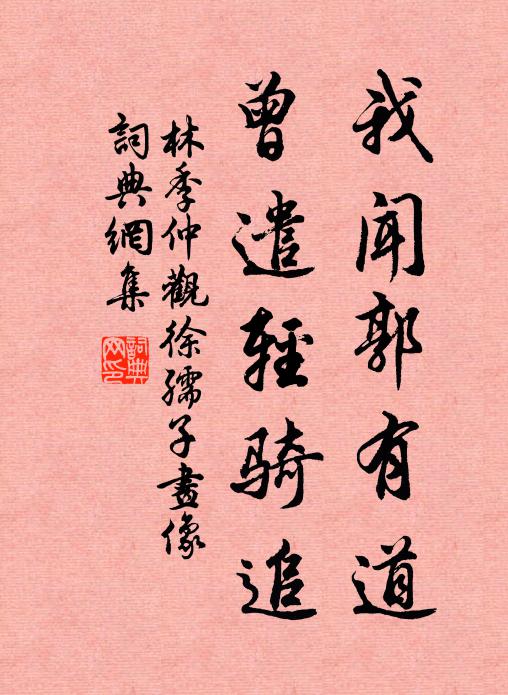 我闻郭有道
曾遣轻骑追
林季仲觀徐孺子畫像
詞典網集
詞典網印